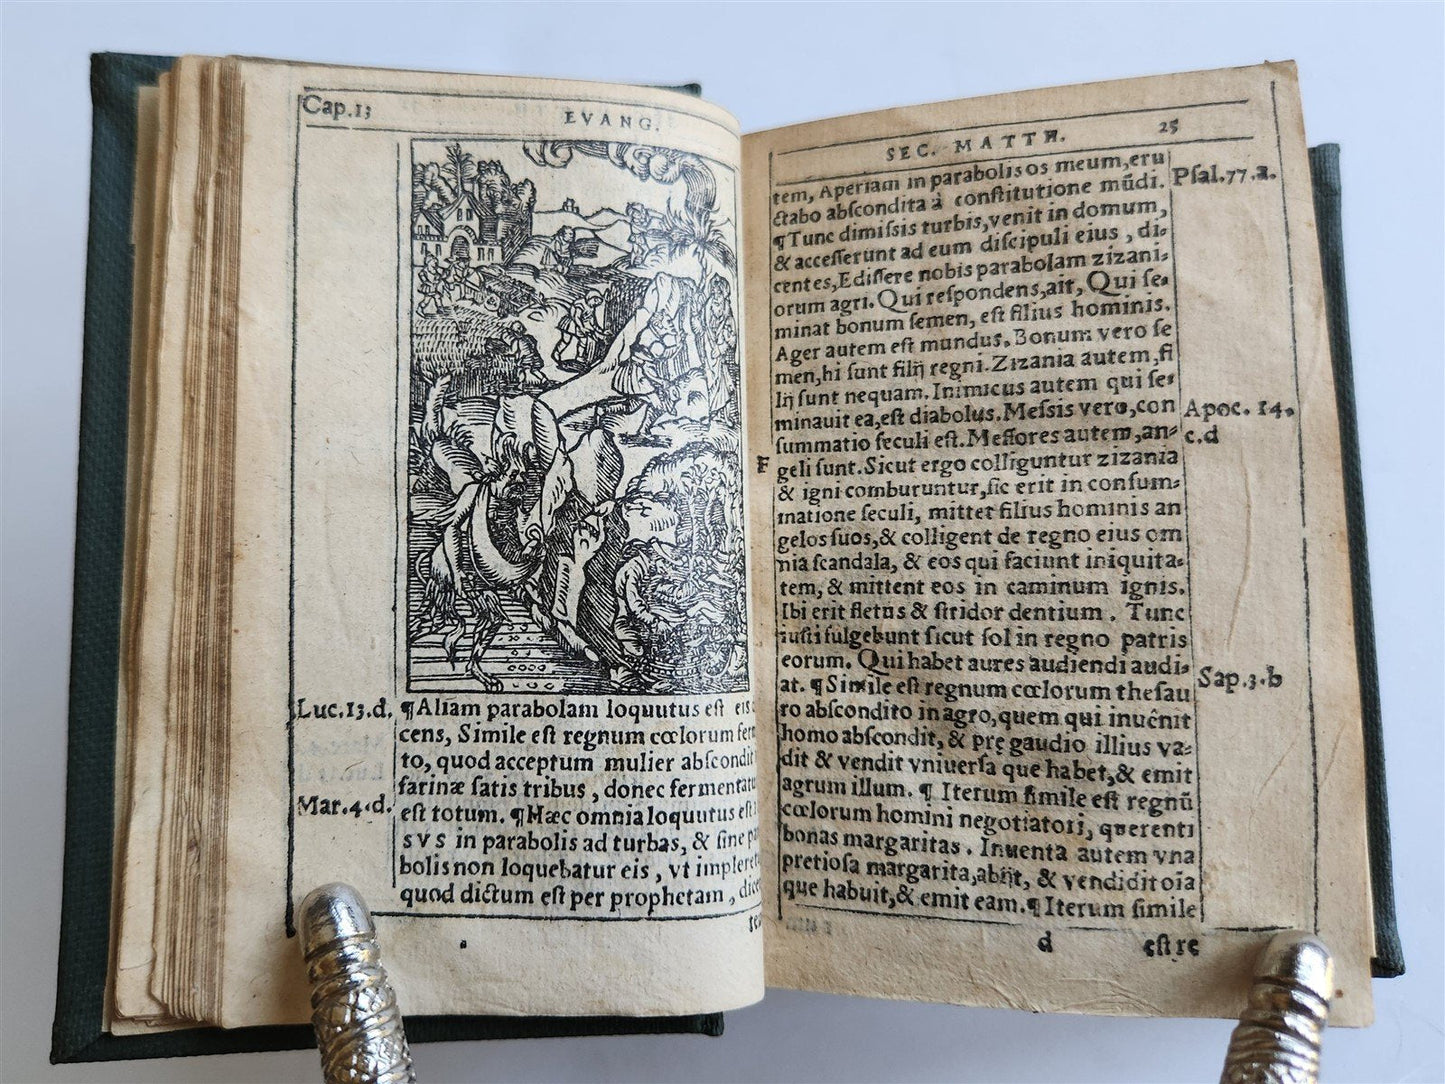 Cap.13
EVANG.
Luc.13.d.
¶Aliam parabolam loquutus est eis
cens, Simile est regnum cœlorum fer
to, quod acceptum mulier abſcondit
farinæ ſatis tribus, donec fermentatu
Mar.4.d.
est totum. ¶Hæc omnia loquutus eſt
svs in parabolis ad turbas, & ſine
bolis non loquebatur eis, vt implere
quod dictum eſt per prophetam, dice
SEC. MATTH.
25
tem, Aperiam in parabolis os meum, eru
Pſal.77.a.
ctabo abſcondita à conſtitutione mūdi.
¶Tunc dimiſsis turbis, venit in domum,
& acceſſerunt ad eum diſcipuli eius, di-
centes, Ediſſere nobis parabolam zizani-
orum agri. Qui reſpondens, ait, Qui ſe-
minat bonum ſemen, eſt filius hominis.
Ager autem eſt mundus. Bonum vero ſe
men, hi ſunt filij regni. Zizania autem, fi
lij ſunt nequam. Inimicus autem qui ſe-
minauit ea, eſt diabolus. Meſsis vero, con
Apoc. 14.
c.d
ſummatio ſeculi eſt. Meſſores autem, an-
F
geli ſunt. Sicut ergo colliguntur zizania
& igni comburuntur, ſic erit in conſum-
matione ſeculi, mittet filius hominis an
gelos ſuos, & colligent de regno eius om
nia ſcandala, & eos qui faciunt iniquita-
tem, & mittent eos in caminum ignis.
Ibi erit fletus & ſtridor dentium. Tunc
iuſti fulgebunt ſicut ſol in regno patris
eorum. Qui habet aures audiendi audi-
Sap.3.b
at. ¶Simile eſt regnum cœlorum theſau
ro abſcondito in agro, quem qui inuēnit
homo abſcondit, & prę gaudio illius va-
dit & vendit vniuerſa que habet, & emit
agrum illum. ¶ Iterum ſimile eſt regnū
cœlorum homini negotiatori, querenti
bonas margaritas. Inuenta autem vna
pretioſa margarita, abijt, & vendidit oīa
que habuit, & emit eam. ¶Iterum ſimile
d
eſt re